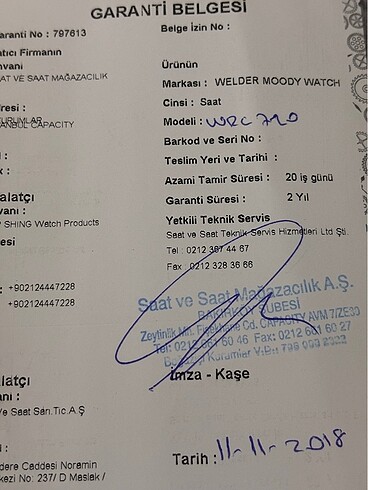 GARANTİ BELGESİ
aranti No : 797613
Belge İzin No :
atıcı Firmanın
nvanı
AT VE SAAT MAĞAZACILIK
Ürünün
Markası : WELDER MOODY WATCH
Cinsi : Saat
dresi :
KURUMLAR
ANBUL CAPACITY
Modeli : WRC 720
Barkod ve Seri No :
Teslim Yeri ve Tarihi :
Azami Tamir Süresi : 20 iş günü
Garanti Süresi : 2 Yıl
alatçı
vanı :
SHING Watch Products
esi
Yetkili Teknik Servis
Saat ve Saat Teknik Servis Hizmetleri Ltd Şti.
Tel : 0212 367 44 67
Fax : 0212 328 36 66
: +902124447228
: +902124447228
Saat ve Saat Mağazacılık A.Ş.
BAKIRKÖY ŞUBESİ
Zeytinlik Mh. Fişekhane Cd. CAPACITY AVM 7/ZE30
Tel: 0212 661 60 46 Fax: 0212 661 60 27
Kurumlar
İmza - Kaşe
alatçı
nı :
Ve Saat San.Tic.A.Ş
Tarih : 11-11-2018
dere Caddesi Noramin
kezi No: 237/ D Maslak /